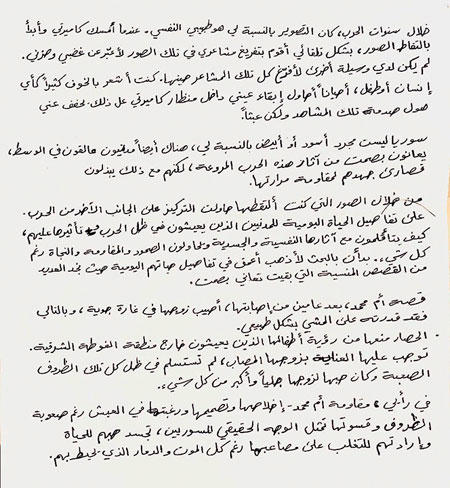 خلال سنوات الحرب، كان التصوير بالنسبة لي هو طبيبي النفسي. عندما أمسك كاميرتي وأبدأ
بالتقاط الصور، بشكل تلقائي أقوم بتفريغ مشاعري في تلك الصور لأعبّر عن غضبي وحزني.
لم يكن لدي وسيلة أخرى لأفرّغ كل تلك المشاعر حينها. كنت أشعر بالخوف كثيراً كأي
إنسان أو طفل، أحياناً أحاول إبقاء عيني داخل منظار كاميرتي عل ذلك يخفف عني
هول صدمة تلك المشاهد ولكن عبثاً.
سوريا ليست مجرد أسود أو أبيض بالنسبة لي، هناك أيضاً مدنيون عالقون في الوسط،
يعانون بصمت من آثار هذه الحرب المروعة، لكنهم مع ذلك يبذلون
قصارى جهدهم لمقاومة مرارتها.
من خلال الصور التي كنت ألتقطها حاولت التركيز على الجانب الآخر من الحرب.
على تفاصيل الحياة اليومية للمدنيين الذين يعيشون في ظل الحرب تأثيرها عليهم،
كيف يتأقلمون مع آثارها النفسية والجسدية ويحاولون الصمود والمقاومة والنجاة رغم
كل شيء.. بدأت بالبحث لأذهب أعمق في تفاصيل حياتهم اليومية حيث نجد العديد
من القصص المنسية التي بقيت تعاني بصمت.
قصة أم محمد، بعد عامين من إصابتها، أصيب زوجها في غارة جوية، وبالتالي
فقد قدرته على المشي بشكل طبيعي.
الحصار منعها من رؤية أطفالها الذين يعيشون خارج منطقة الغوطة الشرقية.
توجب عليها العناية بزوجها المصاب، لم تستسلم في ظل كل تلك الظروف
الصعبة وكان حبها لزوجها جلياً وأكبر من كل شيء.
في رأيي، مقاومة أم محمد - إخلاصها وتصميمها ورغبتها في العيش رغم صعوبة
الظروف وقسوتها تمثل الوجه الحقيقي للسوريين، تجسد حبهم للحياة
وإرادتهم للتغلب على مصاعبها رغم كل الموت والدمار الذي يحيط بهم.